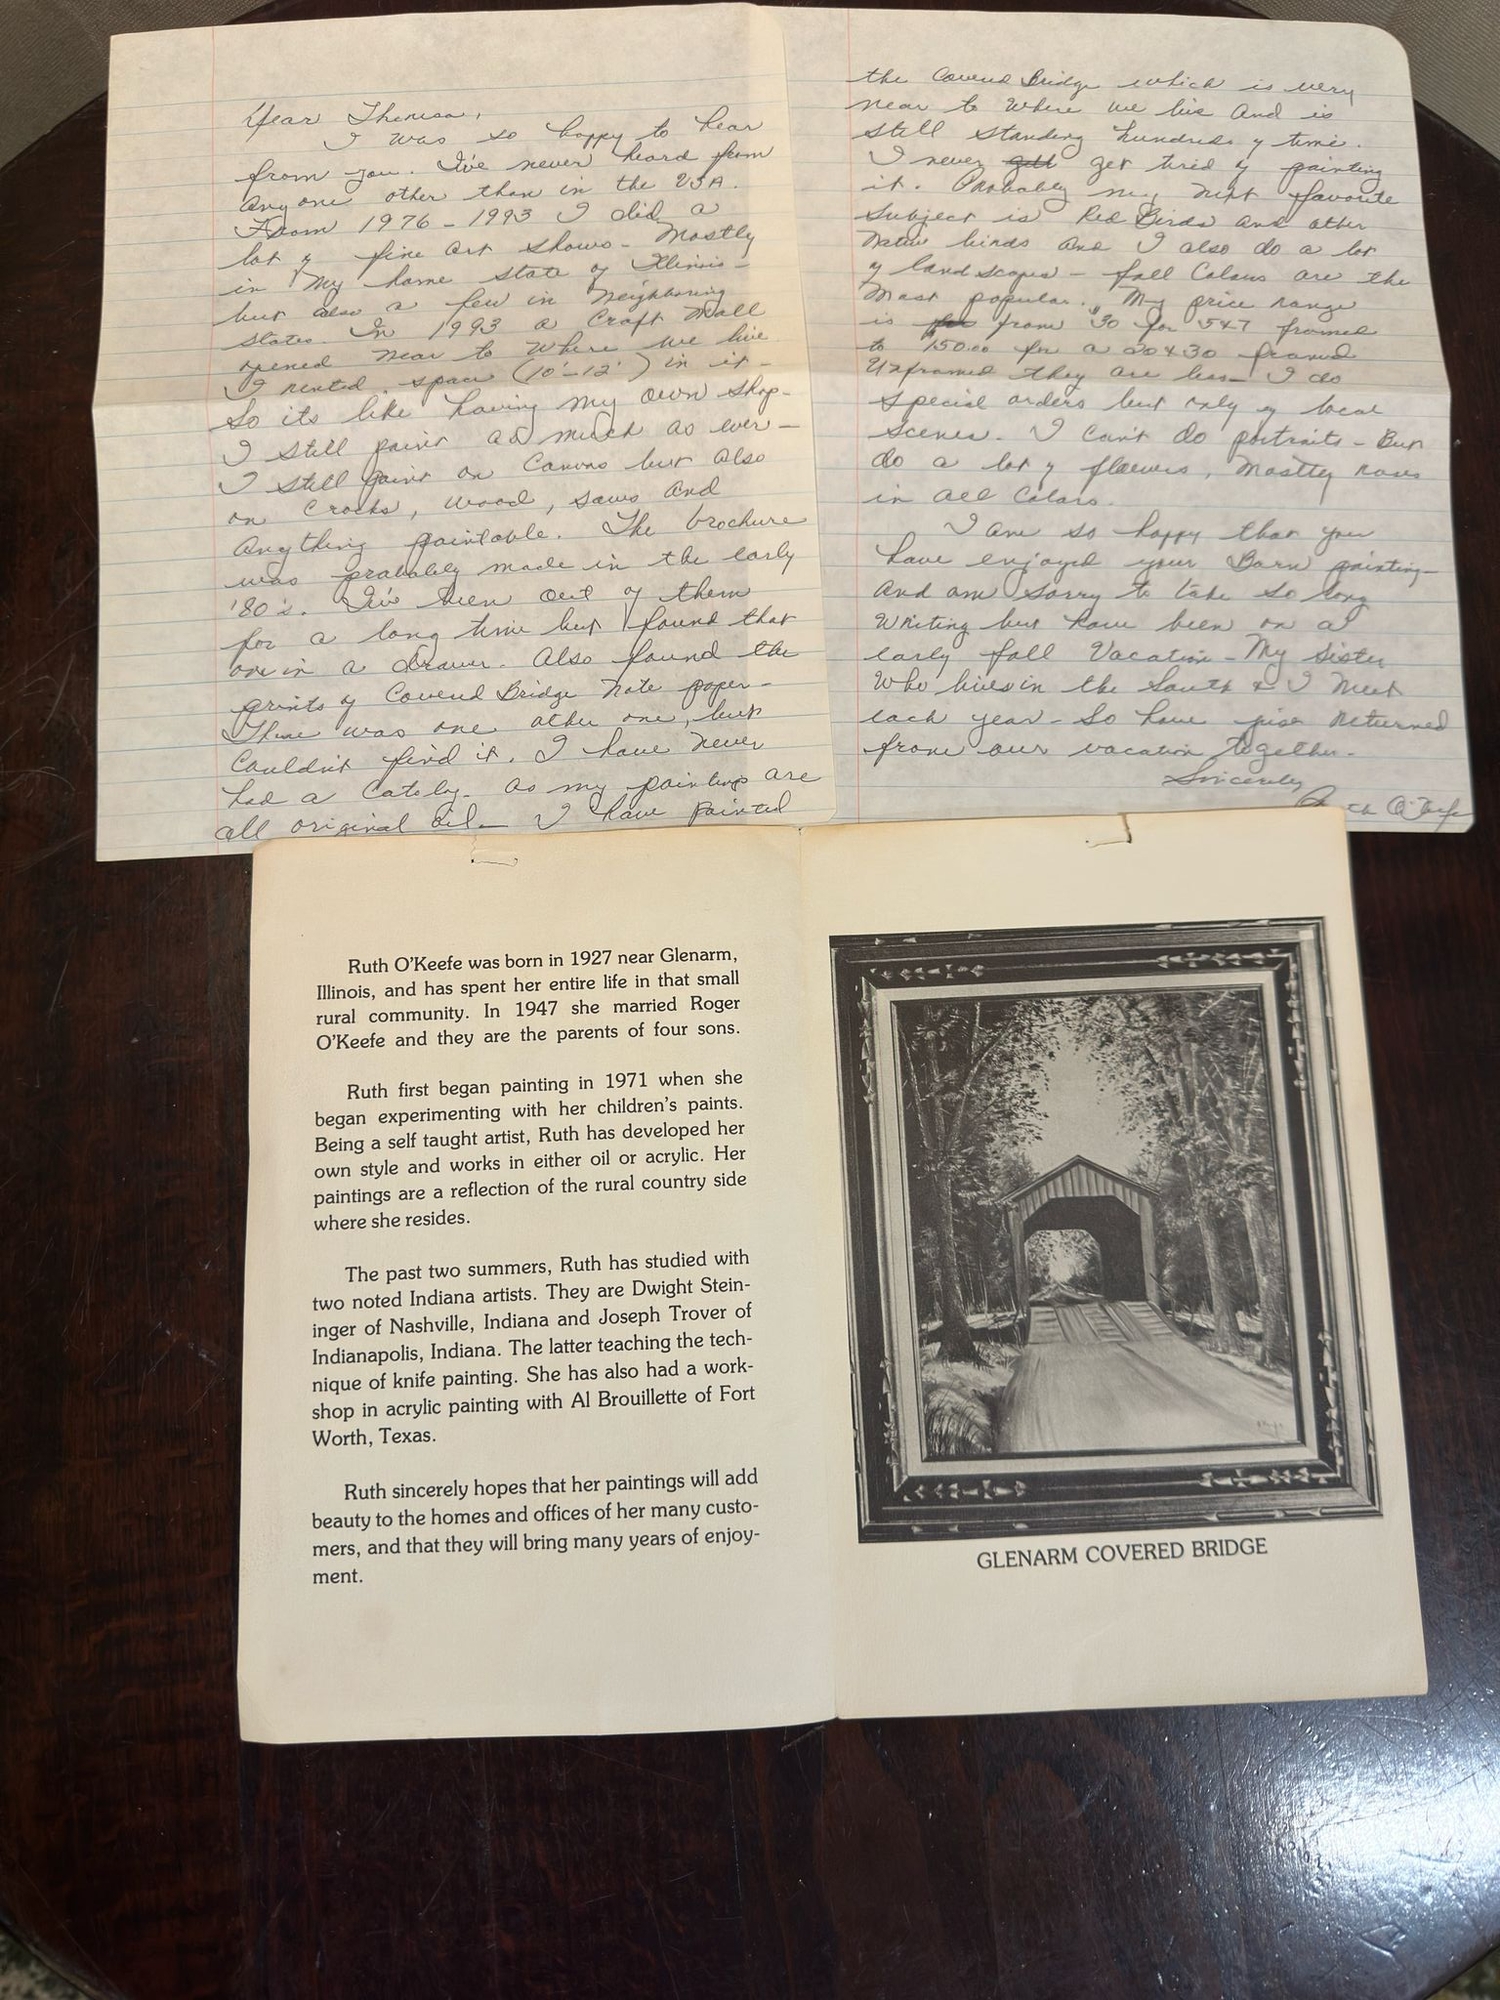 Dear Theresa,
I was so happy to hear
from you. I've never heard from
anyone other than in the USA.
From 1976-1993 I did a
lot of fine art shows - Mostly
in my home state of Illinois -
but also a few in neighboring
states. In 1993 a Craft Mall
opened near to where we live
I rented space (10'-12') in it -
So its like having my own shop -
I still paint as much as ever -
I still paint on Canvas but also
on Crocks, wood, saws and
anything paintable. The brochure
was probably made in the early
'80's. I've been out of them
for a long time but found that
one in a drawer. Also found the
prints of Covered Bridge note paper -
There was one other one, but
couldn't find it. I have never
had a Catolog - as my paintings are
all original oil - I have painted
the Covered Bridge which is very
near to where we live and is
still standing hundreds of time.
I never get tired of painting
it. Probably my next favorite
subject is Red Birds and other
native birds and I also do a lot
of landscapes - fall Colors are the
most popular. My price range
is from $30 for 5x7 framed
to 150.00 for a 20x30 framed
Unframed they are less - I do
special orders but only of local
scenes. I can't do portraits - But
do a lot of flowers, mostly roses
in all Colors.
I am so happy that you
have enjoyed your Barn painting -
and am sorry to take so long
writing but have been on a
early fall Vacation - My sister
who lives in the South & I meet
each year - So have just returned
from our vacation together.
Sincerely
Ruth O'Keefe
Ruth O'Keefe was born in 1927 near Glenarm,
Illinois, and has spent her entire life in that small
rural community. In 1947 she married Roger
O'Keefe and they are the parents of four sons.
Ruth first began painting in 1971 when she
began experimenting with her children's paints.
Being a self taught artist, Ruth has developed her
own style and works in either oil or acrylic. Her
paintings are a reflection of the rural country side
where she resides.
The past two summers, Ruth has studied with
two noted Indiana artists. They are Dwight Stein-
inger of Nashville, Indiana and Joseph Trover of
Indianapolis, Indiana. The latter teaching the tech-
nique of knife painting. She has also had a work-
shop in acrylic painting with Al Brouillette of Fort
Worth, Texas.
Ruth sincerely hopes that her paintings will add
beauty to the homes and offices of her many custo-
mers, and that they will bring many years of enjoy-
ment.
GLENARM COVERED BRIDGE